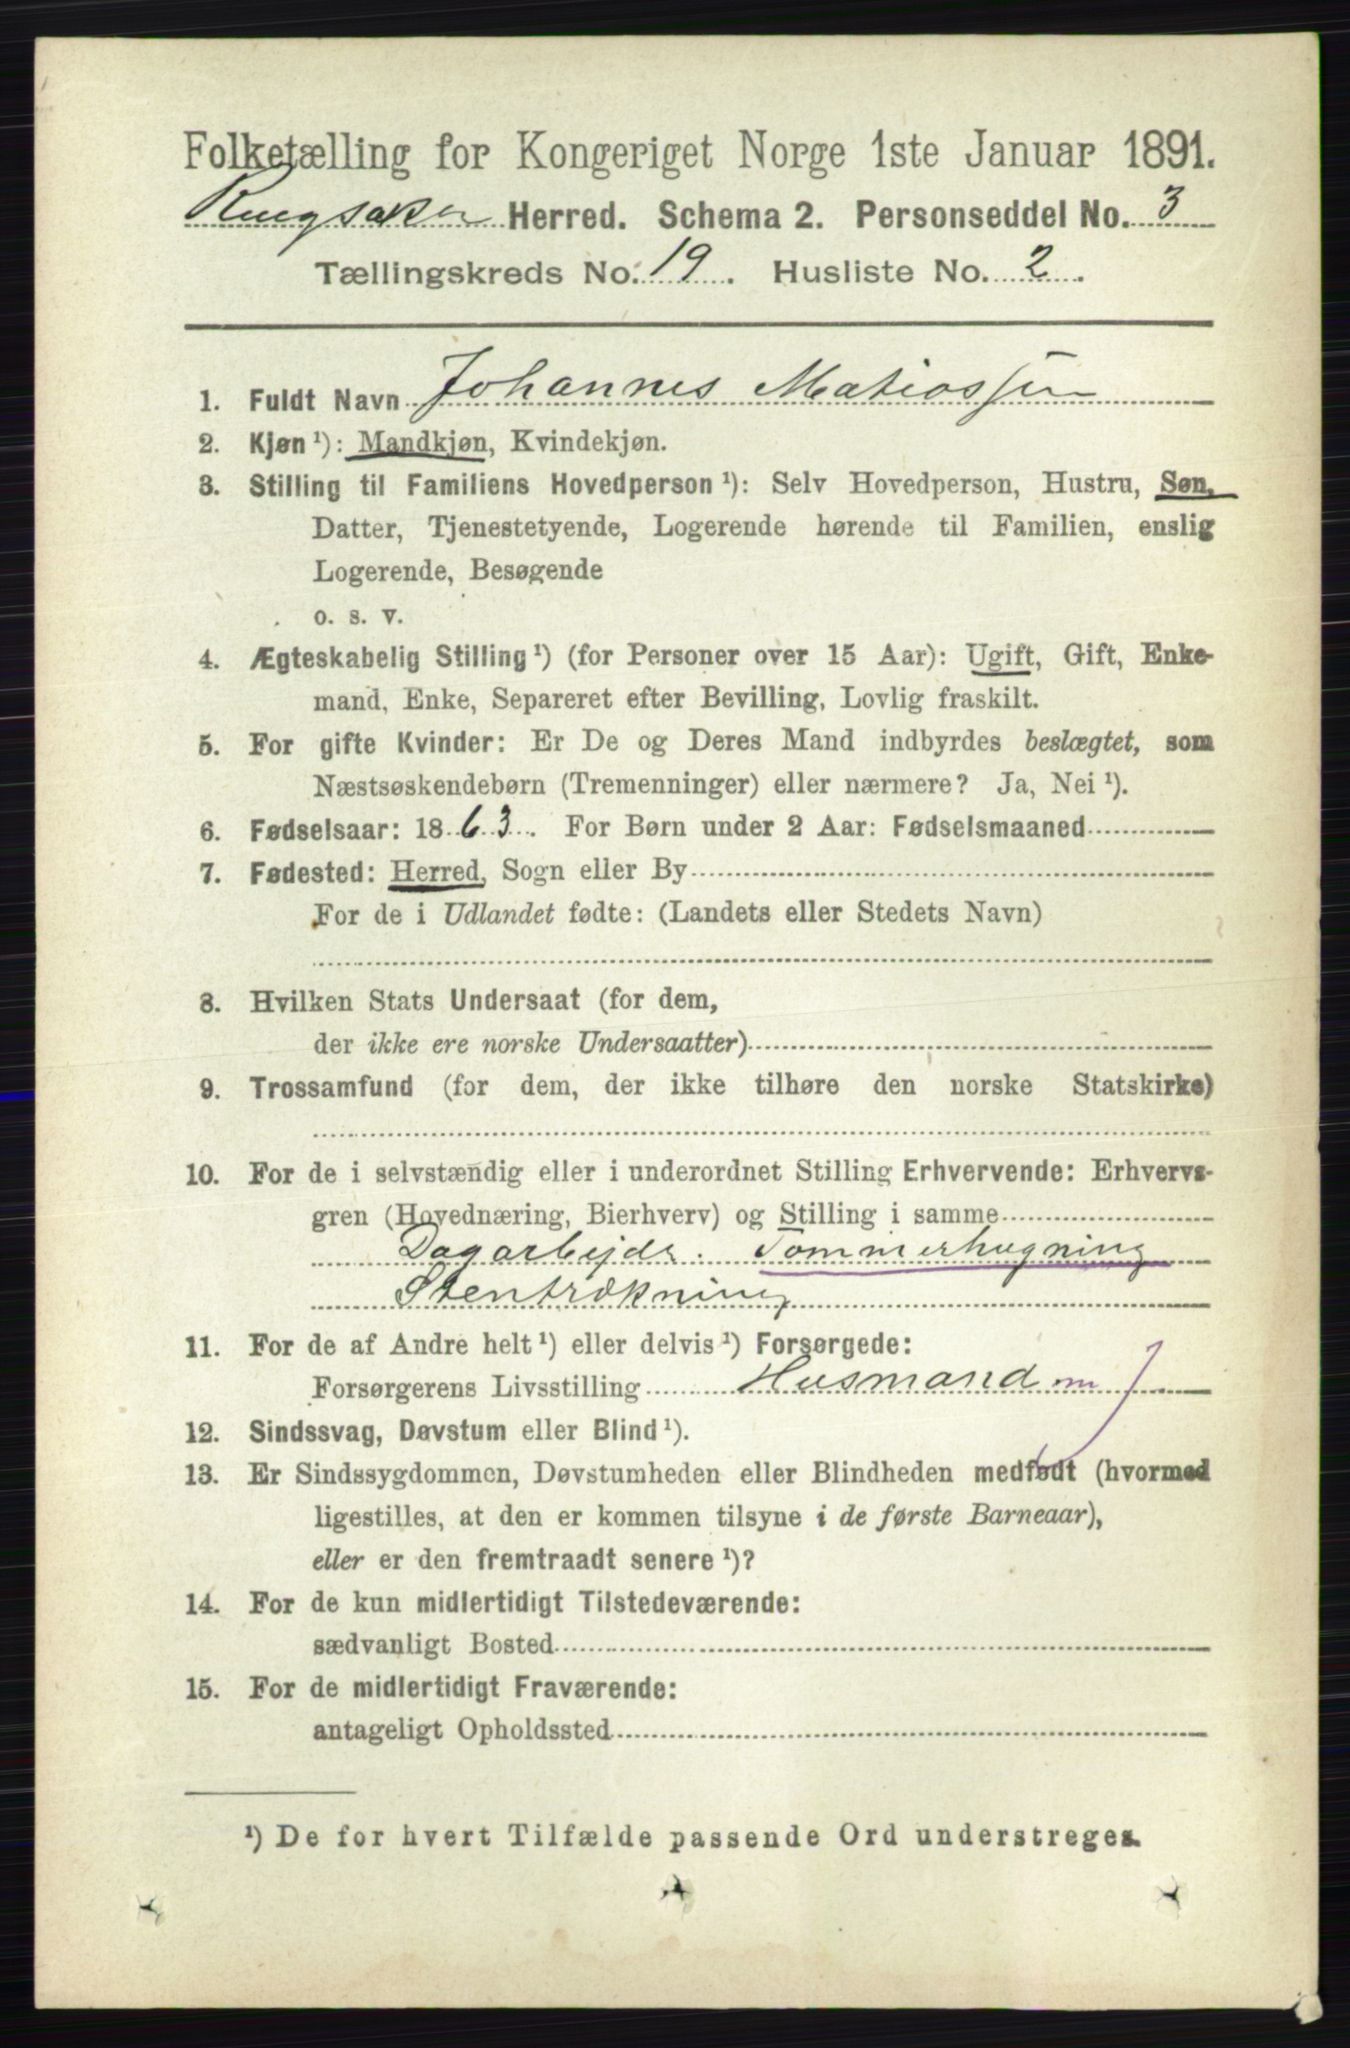 Folketælling for Kongeriget Norge 1ste Januar 1891.
Ringsaker Herred. Schema 2. Personseddel No. 3
Tællingskreds No. 19. Husliste No. 2.
1. Fuldt Navn Johannes Matiossen
2. Kjøn ¹): Mandkjøn, Kvindekjøn.
3. Stilling til Familiens Hovedperson ¹): Selv Hovedperson, Hustru, Søn,
Datter, Tjenestetyende, Logerende hørende til Familien, enslig
Logerende, Besøgende
o. s. v.
4. Ægteskabelig Stilling ¹) (for Personer over 15 Aar): Ugift, Gift, Enke-
mand, Enke, Separeret efter Bevilling, Lovlig fraskilt.
5. For gifte Kvinder: Er De og Deres Mand indbyrdes beslægtet, som
Næstsøskendebørn (Tremenninger) eller nærmere? Ja, Nei ¹).
6. Fødselsaar: 1863. For Børn under 2 Aar: Fødselsmaaned
7. Fødested: Herred, Sogn eller By
For de i Udlandet fødte: (Landets eller Stedets Navn)
8. Hvilken Stats Undersaat (for dem,
der ikke ere norske Undersaatter)
9. Trossamfund (for dem, der ikke tilhøre den norske Statskirke)
10. For de i selvstændig eller i underordnet Stilling Erhvervende: Erhvervs-
gren (Hovednæring, Bierhverv) og Stilling i samme
Dagarbejde. Tommerhugning
Stenbrækning
11. For de af Andre helt ¹) eller delvis ¹) Forsørgede:
Forsørgerens Livsstilling Husmand m J
12. Sindssvag, Døvstum eller Blind ¹).
13. Er Sindssygdommen, Døvstumheden eller Blindheden medfødt (hvormed
ligestilles, at den er kommen tilsyne i de første Barneaar),
eller er den fremtraadt senere ¹)?
14. For de kun midlertidigt Tilstedeværende:
sædvanligt Bosted
15. For de midlertidigt Fraværende:
antageligt Opholdssted
¹) De for hvert Tilfælde passende Ord understreges.